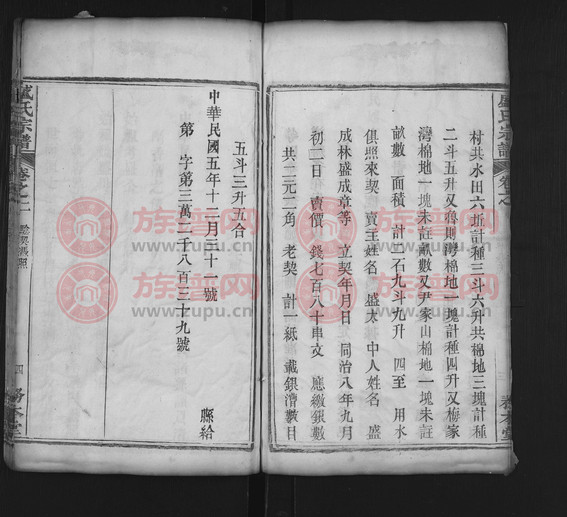 村共水田六坵計種三斗六升共棉地三塊計種
二斗五升又魯則灣棉地一塊計種四升又梅家
灣棉地一塊未註畝數又尹家山棉地一塊未註
畝數　面積　計二石九斗九升　四至　用水
俱照來契　賣主姓名　盛太　中人姓名　盛
成林盛成章等　立契年月日　同治八年九月
初二日　賣價　錢七百八十串文　應繳銀數
共二元二角　老契　計一紙　載銀漕數目
五斗三升五合
中華民國五年十二月三十一號
第　字第三萬二千八百三十九號
縣給
盛氏宗譜
卷之二
四
務本堂
族譜网
www.zupu.cn
族譜网
www.zupu.cn
族譜网
www.zupu.cn
族譜网
www.zupu.cn
族譜网
www.zupu.cn
族譜网
www.zupu.cn